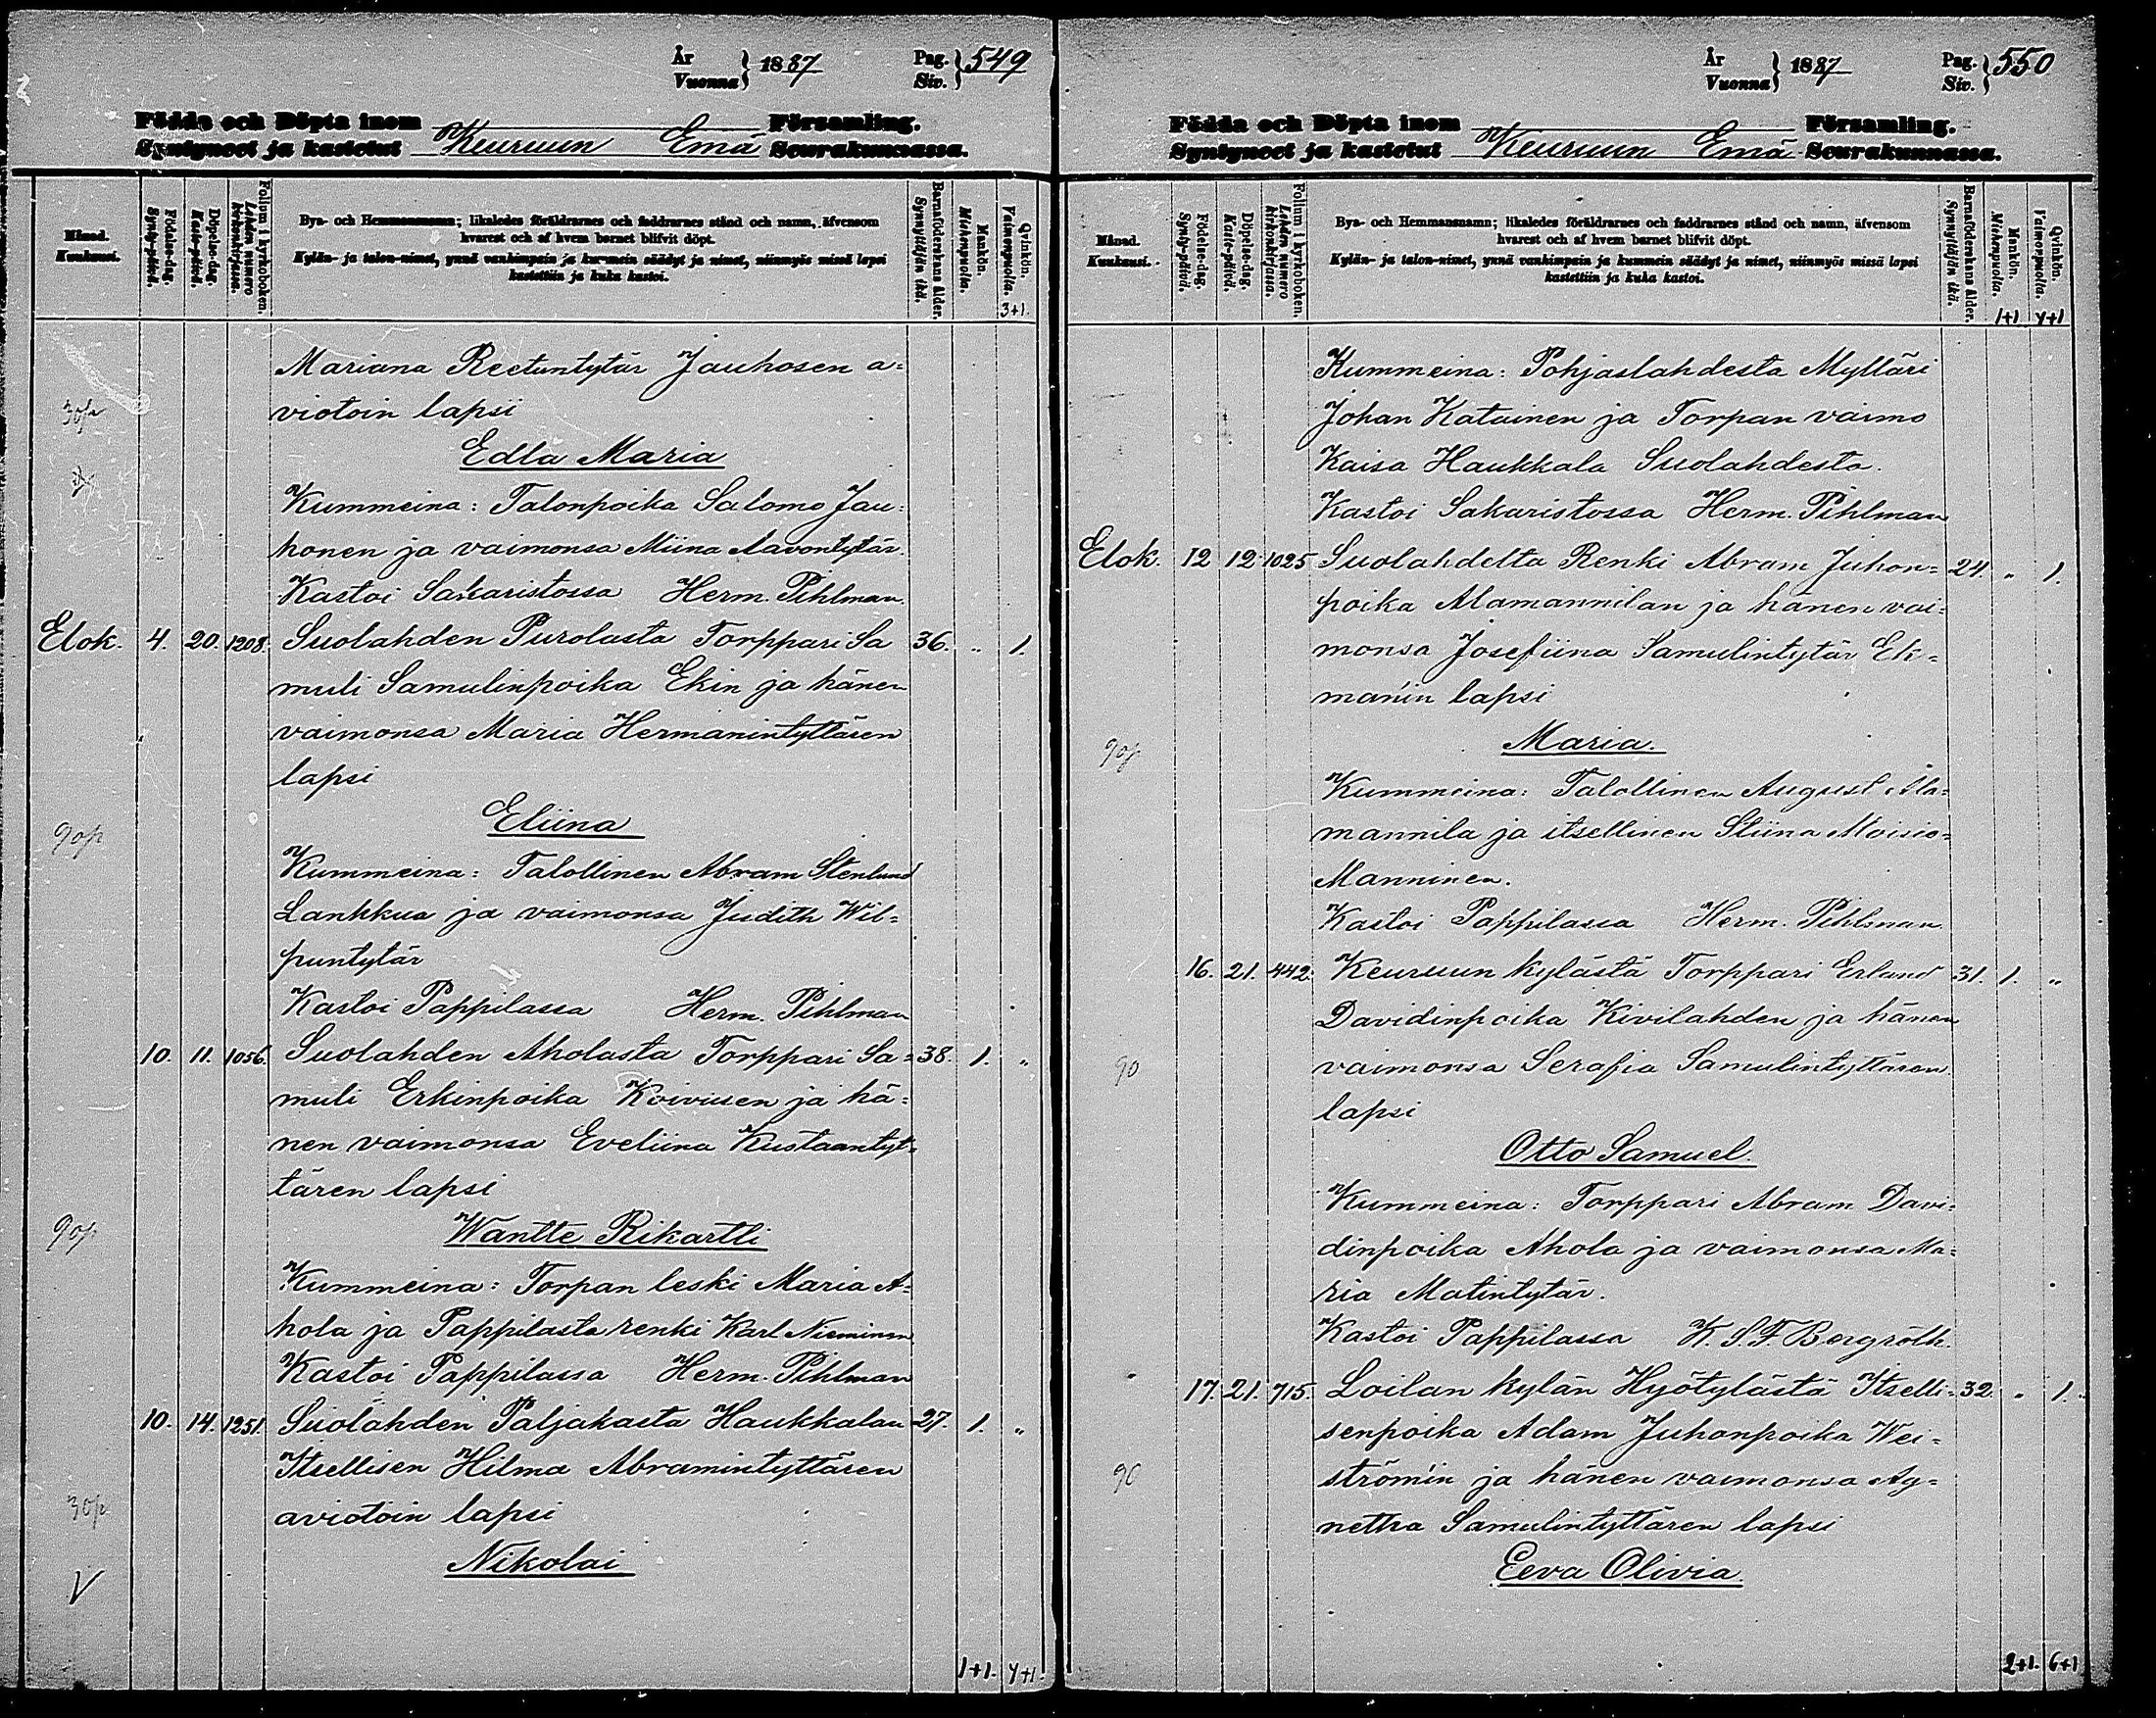 År Vuonna } 1887 Pag. Siv. } 549
Födda och Döpta inom Församling.
Syntyneet ja kastetut Keuruun Emä Seurakunnassa.
Månad. Kuukausi.
Födelse-dag. Synty-päivä.
Döpelse-dag. Kaste-päivä.
Folium i kyrkoboken. Lehden numero kirkonkirjassa.
Bya- och Hemmansnamn; likaledes föräldrarnes och faddrarnes stånd och namn, äfvensom
hvarest och af hvem barnet blifvit döpt.
Kylän- ja talon-nimet, ynnä vanhimpain ja kummein säädyt ja nimet, niinmyös missä lapsi
kastettiin ja kuka kastoi.
Barnaföderskans ålder. Synnyttäjän ikä.
Mankön. Miehenpuolia.
Qvinkön. Vaimonpuolia.
3+1.
Mariana Reetuntytär Jauhosen a=
30p viotoin lapsi
Edla Maria
Kummeina: Talonpoika Salomo Jau=
honen ja vaimonsa Miina Aavontytär.
Kastoi Sakaristossa Herm. Pihlman.
Elok. 4. 20. 1208. Suolahden Purolasta Torppari Sa 36. „ 1.
muli Samulinpoika Ekin ja hänen
vaimonsa Maria Hermanintyttären
lapsi
90p Eliina
Kummeina: Talollinen Abram Stenlund
Lankkua ja vaimonsa Judith Wil=
puntytär
Kastoi Pappilassa Herm. Pihlman
10. 11. 1056. Suolahden Aholasta Torppari Sa= 38. 1. „
muli Erkinpoika Koivusen ja hä=
nen vaimonsa Eveliina Kustaantyt=
tären lapsi
90p Wantte Rikartti
Kummeina: Torpan leski Maria A=
hola ja Pappilasta renki Karl Nieminen
Kastoi Pappilassa Herm. Pihlman
10. 14. 1251. Suolahden Paljakasta Haukkalan 27. 1. „
Itsellisen Hilma Abramintyttären
30p aviotoin lapsi
V Nikolai
1+1. 4+1.
År Vuonna } 1887 Pag. Siv. } 550
Födda och Döpta inom Församling.
Syntyneet ja kastetut Keuruun Emä Seurakunnassa.
Månad. Kuukausi.
Födelse-dag. Synty-päivä.
Döpelse-dag. Kaste-päivä.
Folium i kyrkoboken. Lehden numero kirkonkirjassa.
Bya- och Hemmansnamn; likaledes föräldrarnes och faddrarnes stånd och namn, äfvensom
hvarest och af hvem barnet blifvit döpt.
Kylän- ja talon-nimet, ynnä vanhimpain ja kummein säädyt ja nimet, niinmyös missä lapsi
kastettiin ja kuka kastoi.
Barnaföderskans ålder. Synnyttäjän ikä.
Mankön. Miehenpuolia.
Qvinkön. Vaimonpuolia.
1+1 4+1
Kummeina: Pohjaslahdesta Mylläri
Johan Katainen ja Torpan vaimo
Kaisa Haukkala Suolahdesta.
Kastoi Sakaristossa Herm. Pihlman
Elok. 12 12 1025 Suolahdelta Renki Abram Juhon= 24. „ 1.
poika Alamannilan ja hänen vai=
monsa Josefiina Samulintytär Ek=
man'in lapsi
90p Maria.
Kummeina: Talollinen August Ala=
mannila ja itsellinen Stiina Moisio=
Manninen.
Kastoi Pappilassa Herm. Pihlman
16. 21. 442. Keuruun kylästä Torppari Erland 31. 1. „
Davidinpoika Kivilahden ja hänen
90 vaimonsa Serafia Samulintyttären
lapsi
Otto Samuel.
Kummeina: Torppari Abram Davi=
dinpoika Ahola ja vaimonsa Ma=
ria Matintytär.
Kastoi Pappilassa K. S. F. Bergroth.
17. 21. 715. Loilan kylän Hyötylästä Itselli= 32. „ 1.
senpoika Adam Juhonpoika Wei=
90 ström'in ja hänen vaimonsa Ag=
netha Samulintyttären lapsi
Eeva Olivia.
2+1. 6+1